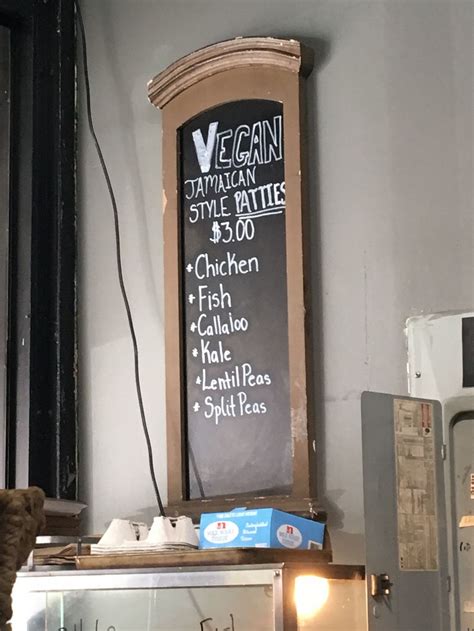 VEGAN
JAMAICAN
STYLE PATTIES
$3.00
* Chicken
* Fish
* Callaloo
* Kale
* Lentil Peas
* Split Peas
Fish